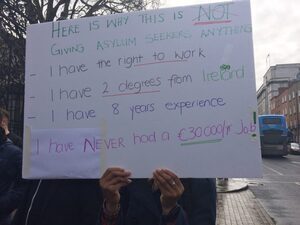 HERE IS WHY THIS IS NOT
GIVING ASYLUM SEEKERS ANYTHING
- I have the right to work
- I have 2 degrees from Ireland
- I have 8 years experience
I have NEVER had a €30000/yr Job!